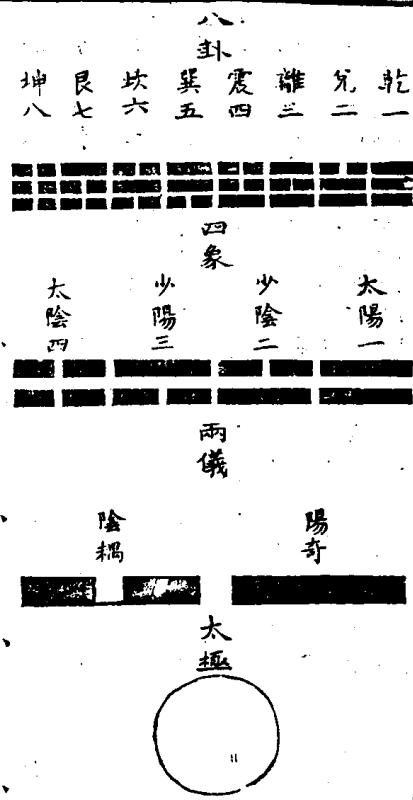 八卦
乾一
兌二
離三
震四
巽五
坎六
艮七
坤八
四象
太陽一
少陰二
少陽三
太陰四
兩儀
陽奇
陰耦
太極